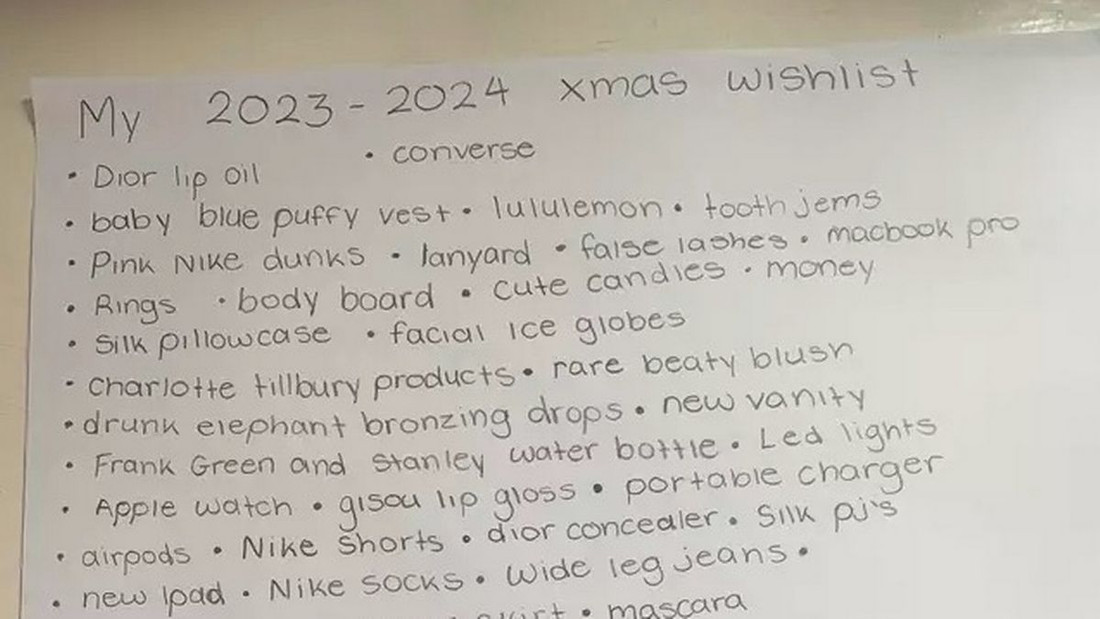 My 2023-2024 xmas wishlist
• converse
• Dior lip oil
• baby blue puffy vest • lululemon • tooth jems
• Pink Nike dunks • lanyard • false lashes • macbook pro
• Rings • body board • cute candles • money
• Silk pillowcase • facial ice globes
• Charlotte tillbury products • rare beaty blush
• drunk elephant bronzing drops • new vanity
• Frank Green and Stanley water bottle • Led lights
• Apple watch • gisou lip gloss • portable charger
• airpods • Nike shorts • dior concealer • Silk pj's
• new Ipad • Nike socks • wide leg jeans •
• mascara